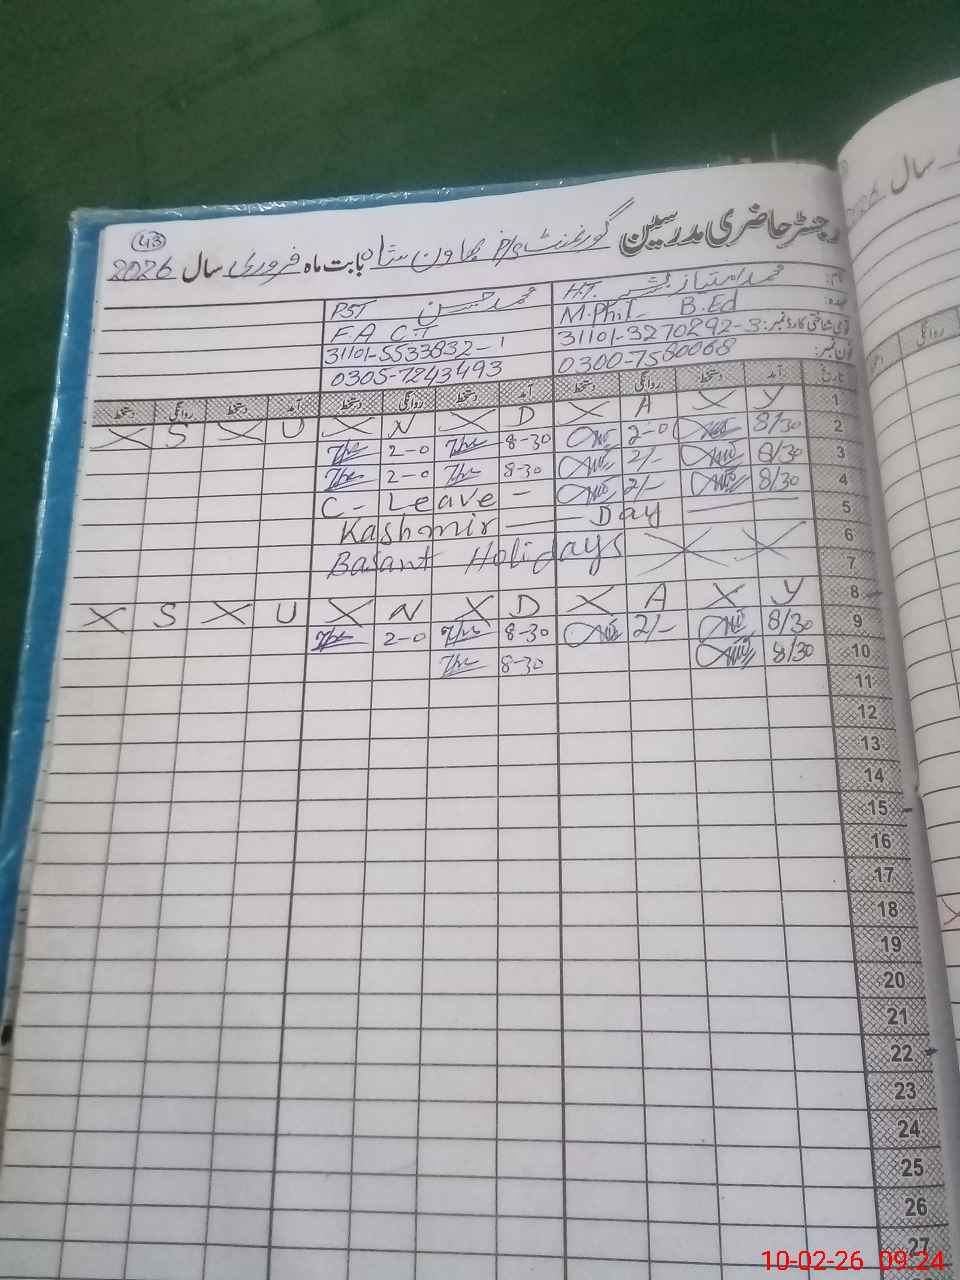 43
رجسٹر حاضری مدرسین گورنمنٹ P/S بابت ماہ فروری سال 2026
نام: محمد امتیاز H.T. محمد حسین PST
عہدہ: M.Phil B.Ed F.A C.T
قومی شناختی کارڈ نمبر: 31101-3270292-3 31101-5533832-1
فون نمبر: 0300-7580068 0305-7243493
تاریخ آمد دستخط روانگی دستخط آمد دستخط روانگی دستخط آمد دستخط روانگی دستخط
1 X S X U X N X D X A X Y
2 2-0 8-30 2-0 8/30
3 2-0 8-30 2/- 8/30
4 C- Leave - 2/- 8/30
5 Kashmir Day
6 Basant Holidays X X
7
8 X S X U X N X D X A X Y
9 2-0 8-30 2/- 8/30
10 8-30 8/30
11
12
13
14
15
16
17
18
19
20
21
22
23
24
25
26
27
سال
10-02-26 09:24